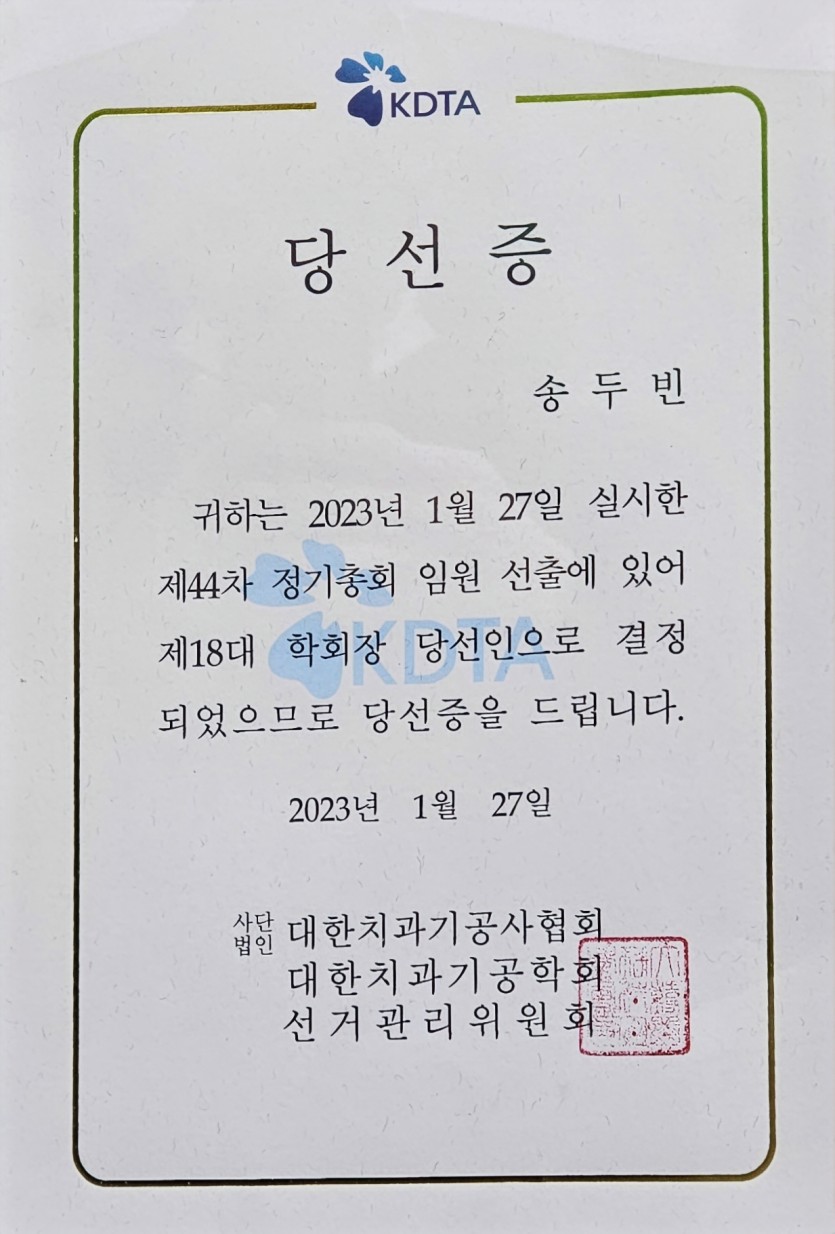 KDTA
당 선 증
송 두 빈
귀하는 2023년 1월 27일 실시한
제44차 정기총회 임원 선출에 있어
제18대 학회장 당선인으로 결정
되었으므로 당선증을 드립니다.
KDTA
2023년 1월 27일
사단법인 대한치과기공사협회
대한치과기공학회
선거관리위원회